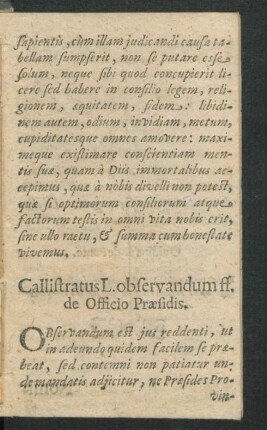 sapientis, cùm illam judicandi causa ta-
bellam sumpserit, non se putare esse
solum, neque sibi quod concupierit li-
cere sed habere in consilio legem, reli-
gionem, æquitatem, fidem: libidi-
nem autem, odium, invidiam, metum,
cupiditatesque omnes amovere: maxi-
meque existimare conscientiam men-
tis suæ, quam à Diis immortalibus ac-
cepimus, quæ à nobis divelli non potest,
quæ si optimorum consiliorum atque
factorum testis in omni vita nobis erit,
sine ullo metu, & summa cum honestate
vivemus.
Callistratus L. observandum ff.
de Officio Præsidis.
OBservandum est jus reddenti, ut
in adeundo quidem facilem se præ-
beat, sed contemni non patiatur un-
de mandatis adjicitur, ne Præsides Pro-
vin-